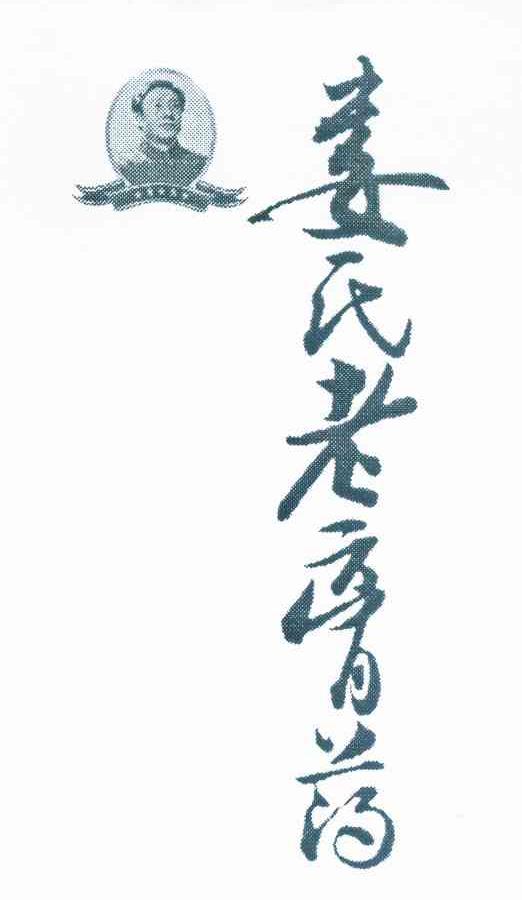 姜氏老膏药